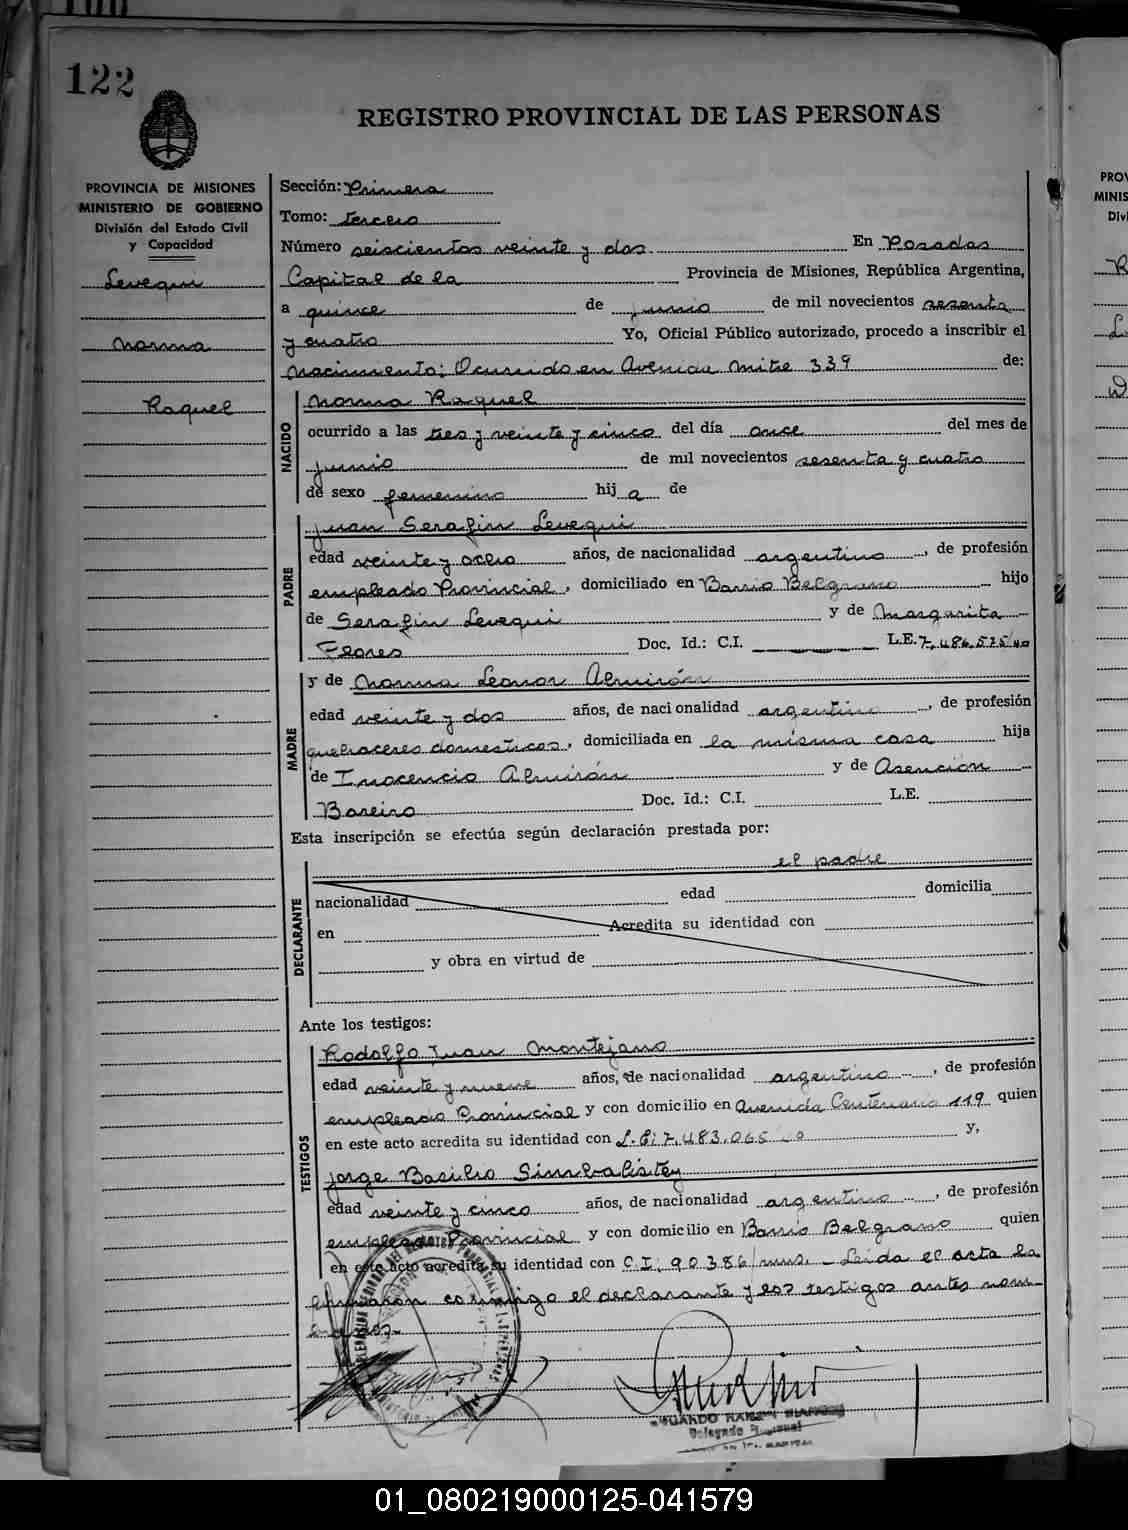 122
REGISTRO PROVINCIAL DE LAS PERSONAS
PROVINCIA DE MISIONES
MINISTERIO DE GOBIERNO
División del Estado Civil
y Capacidad
Levequi
Norma
Raquel
Sección: Primera
Tomo: tercero
Número seiscientos veinte y dos En Posadas
Capital de la Provincia de Misiones, República Argentina,
a quince de junio de mil novecientos sesenta
y cuatro Yo, Oficial Público autorizado, procedo a inscribir el
nacimiento: Ocurrido en Avenida Mitre 339 de:
NACIDO
Norma Raquel
ocurrido a las tres y veinte y cinco del día once del mes de
junio de mil novecientos sesenta y cuatro
de sexo femenino hij a de
PADRE
Juan Serafin Levequi
edad veinte y ocho años, de nacionalidad argentino, de profesión
empleado Provincial, domiciliado en Barrio Belgrano hijo
de Serafin Levequi y de Margarita
Flores Doc. Id.: C.I. L.E. 7.486.525
MADRE
y de Norma Leonor Almirón
edad veinte y dos años, de nacionalidad argentina, de profesión
quehaceres domesticos, domiciliada en la misma casa hija
de Inocencio Almirón y de Asención
Bareiro Doc. Id.: C.I. L.E.
Esta inscripción se efectúa según declaración prestada por:
DECLARANTE
el padre
nacionalidad edad domicilia
en Acredita su identidad con
y obra en virtud de
Ante los testigos:
TESTIGOS
Rodolfo Juan Montejano
edad veinte y nueve años, de nacionalidad argentino, de profesión
empleado Provincial y con domicilio en Avenida Centenario 119 quien
en este acto acredita su identidad con L.E: 7.483.065 y,
Jorge Basilio Simbalistey
edad veinte y cinco años, de nacionalidad argentino, de profesión
empleado Provincial y con domicilio en Barrio Belgrano quien
en este acto acredita su identidad con C.I. 90386/mns. - Leída el acta la
firmaron conmigo el declarante y los testigos antes nom-
brados.-
Delegado
01_080219000125-041579